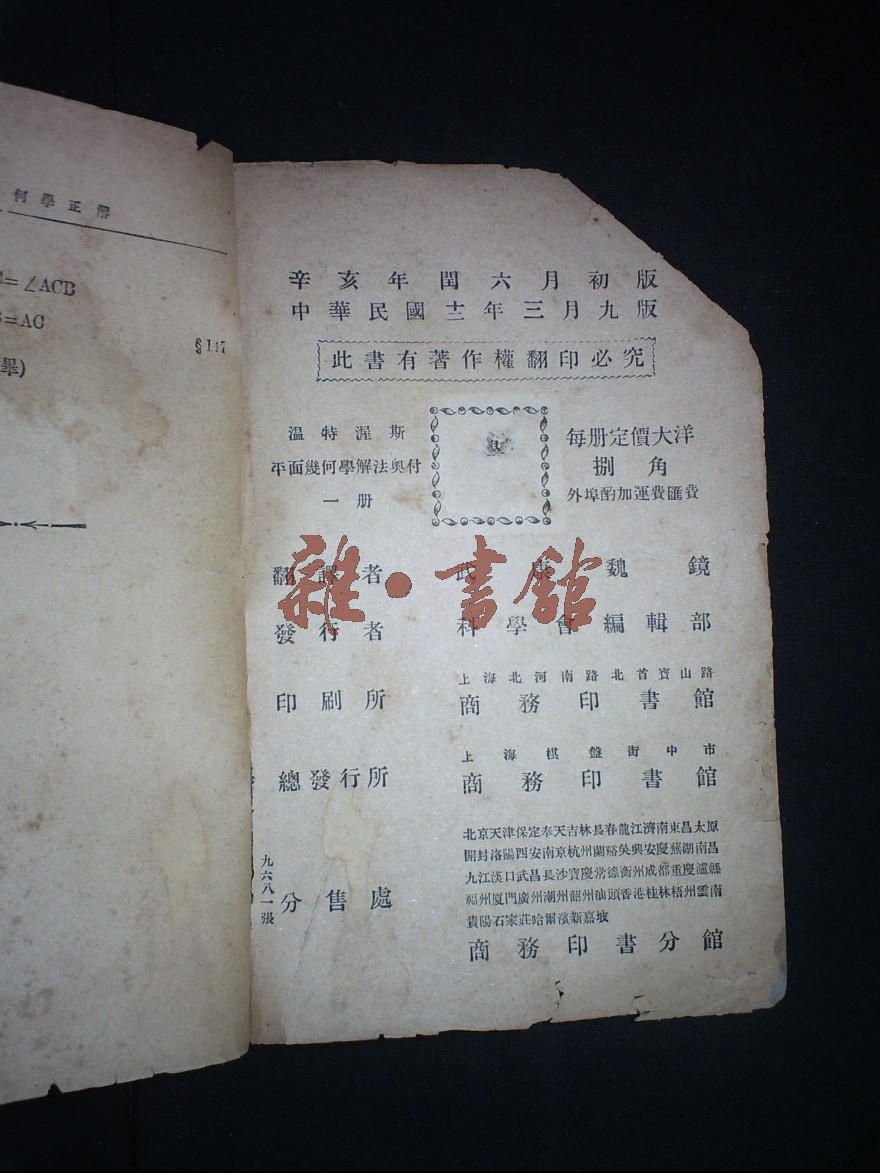 何學正解
=∠ACB
=AC
§147
畢)
辛亥年閏六月初版
中華民國十二年三月九版
此書有著作權翻印必究
溫特渥斯
平面幾何學解法奧付
一册
每册定價大洋
捌角
外埠酌加運費匯費
翻譯者 武康魏鏡
發行者 科學會編輯部
上海北河南路北首寶山路
印刷所 商務印書館
上海棋盤街中市
總發行所 商務印書館
北京天津保定奉天吉林長春龍江濟南東昌太原
開封洛陽西安南京杭州蘭谿吳興安慶蕪湖南昌
九江漢口武昌長沙寶慶常德衡州成都重慶瀘縣
福州厦門廣州潮州韶州汕頭香港桂林梧州雲南
貴陽石家莊哈爾濱新嘉坡
分售處 商務印書分館
九六八一張
雜·書館